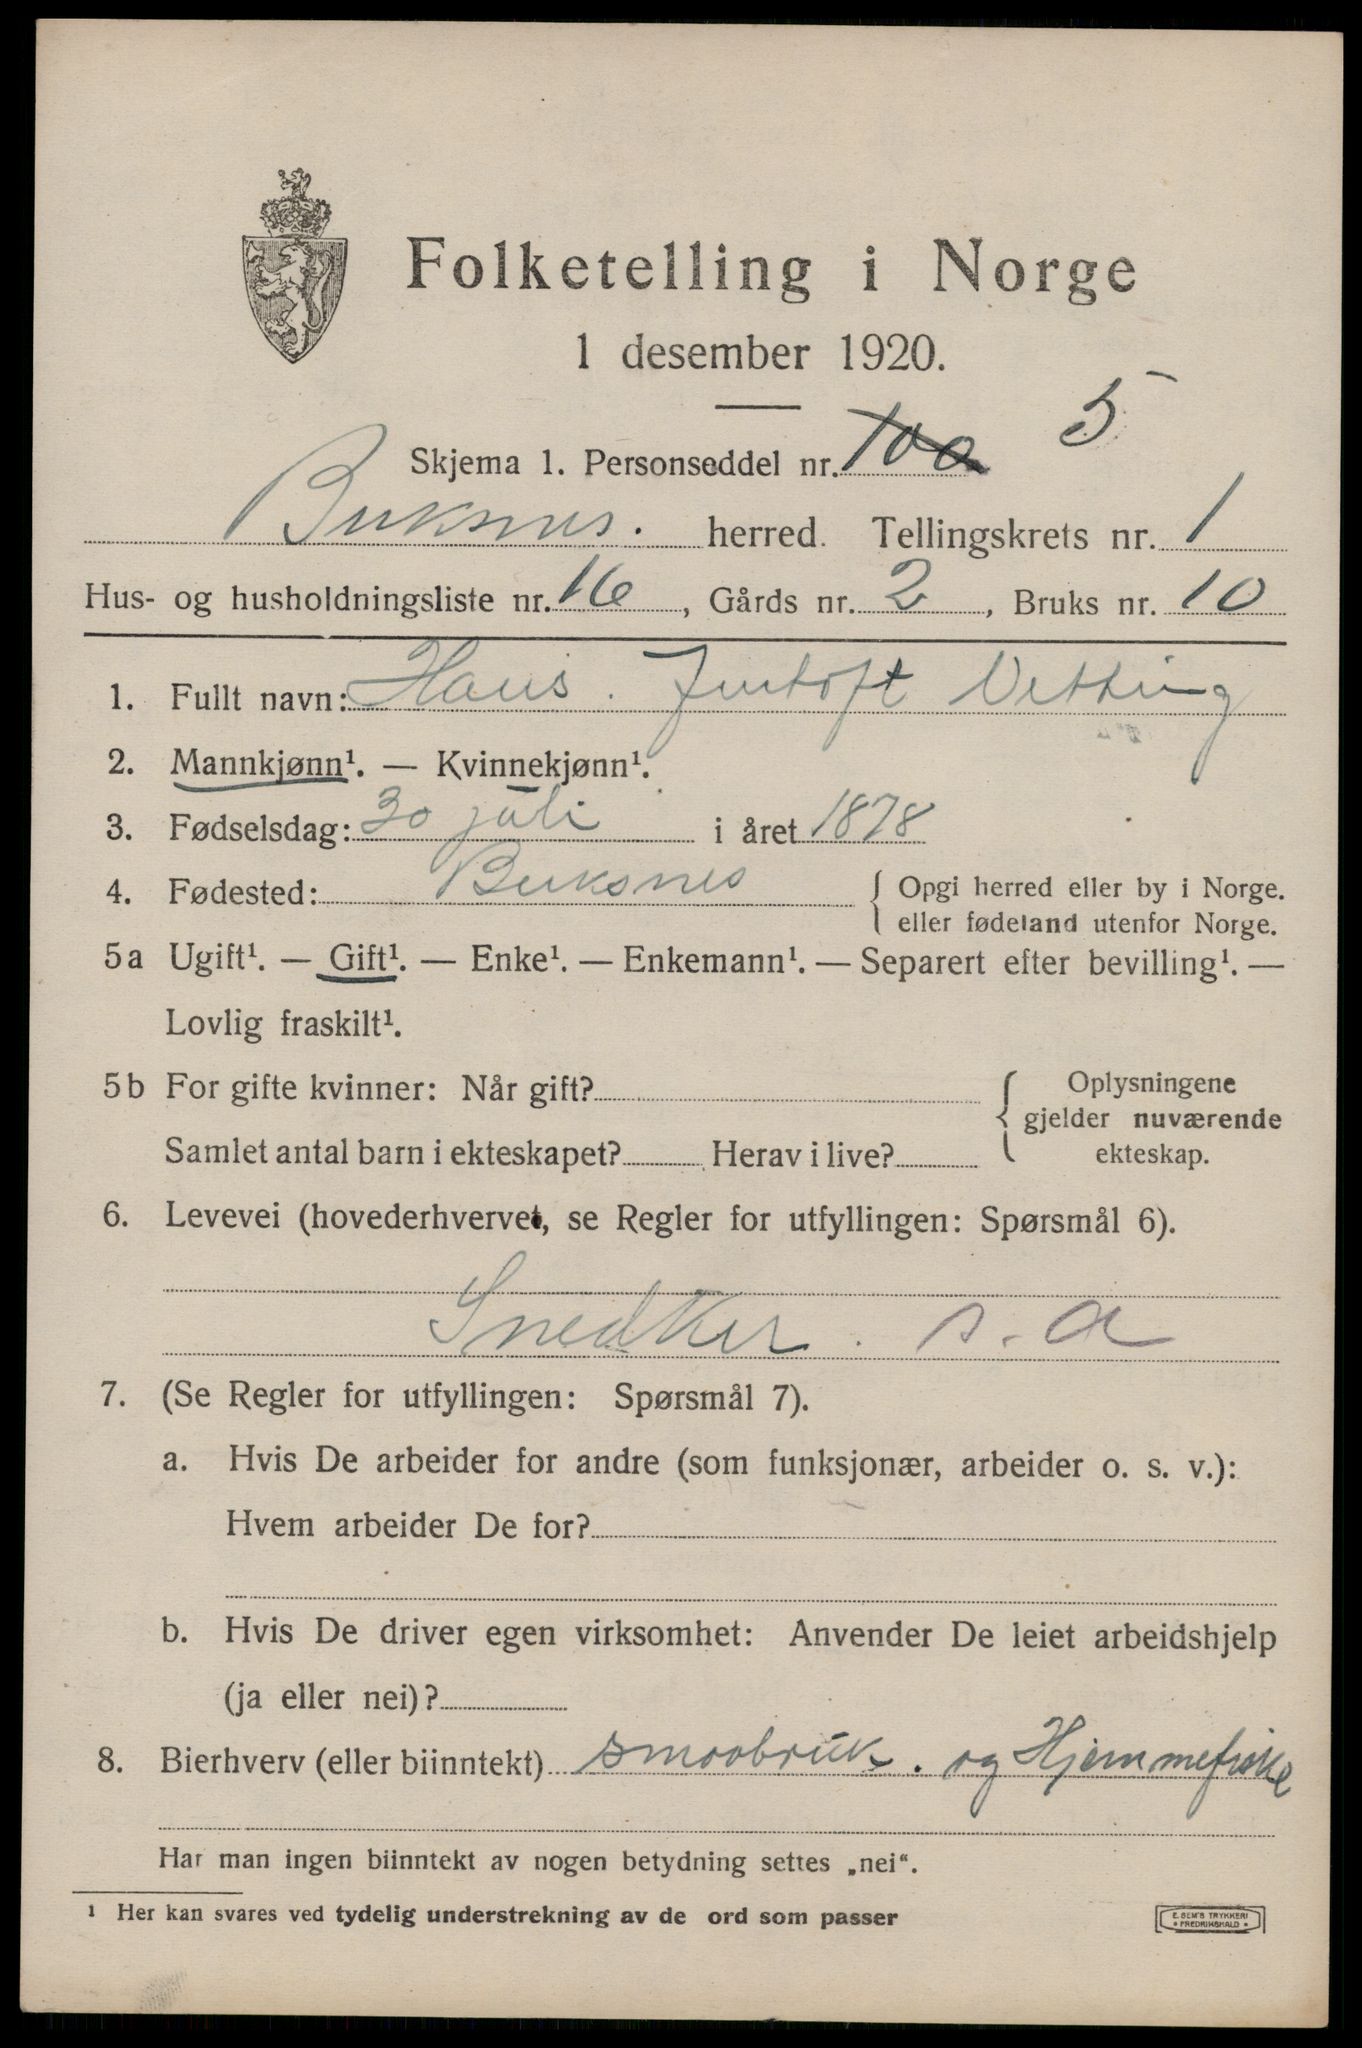 Folketelling i Norge
1 desember 1920.
5
Skjema 1. Personseddel nr. 100
Buksnes. herred. Tellingskrets nr. 1
Hus- og husholdningsliste nr. 16, Gårds nr. 2, Bruks nr. 10
1. Fullt navn: Hans. Jentoft Vetting
2. Mannkjønn¹. — Kvinnekjønn¹.
3. Fødselsdag: 30 juli i året 1878
4. Fødested: Buksnes { Opgi herred eller by i Norge.
eller fødeland utenfor Norge.
5a Ugift¹. — Gift¹. — Enke¹. — Enkemann¹. — Separert efter bevilling¹. —
Lovlig fraskilt¹.
5b For gifte kvinner: Når gift? { Oplysningene
gjelder nuværende
Samlet antal barn i ekteskapet? Herav i live? ekteskap.
6. Levevei (hovederhvervet, se Regler for utfyllingen: Spørsmål 6).
Snedker. s. a
7. (Se Regler for utfyllingen: Spørsmål 7).
a. Hvis De arbeider for andre (som funksjonær, arbeider o. s. v.):
Hvem arbeider De for?
b. Hvis De driver egen virksomhet: Anvender De leiet arbeidshjelp
(ja eller nei)?
8. Bierhverv (eller biinntekt) smaabruk. og Hjemmefiske
Har man ingen biinntekt av nogen betydning settes „nei“.
¹ Her kan svares ved tydelig understrekning av de ord som passer
E. SEM'S TRYKKERI
• FREDRIKSHALD •